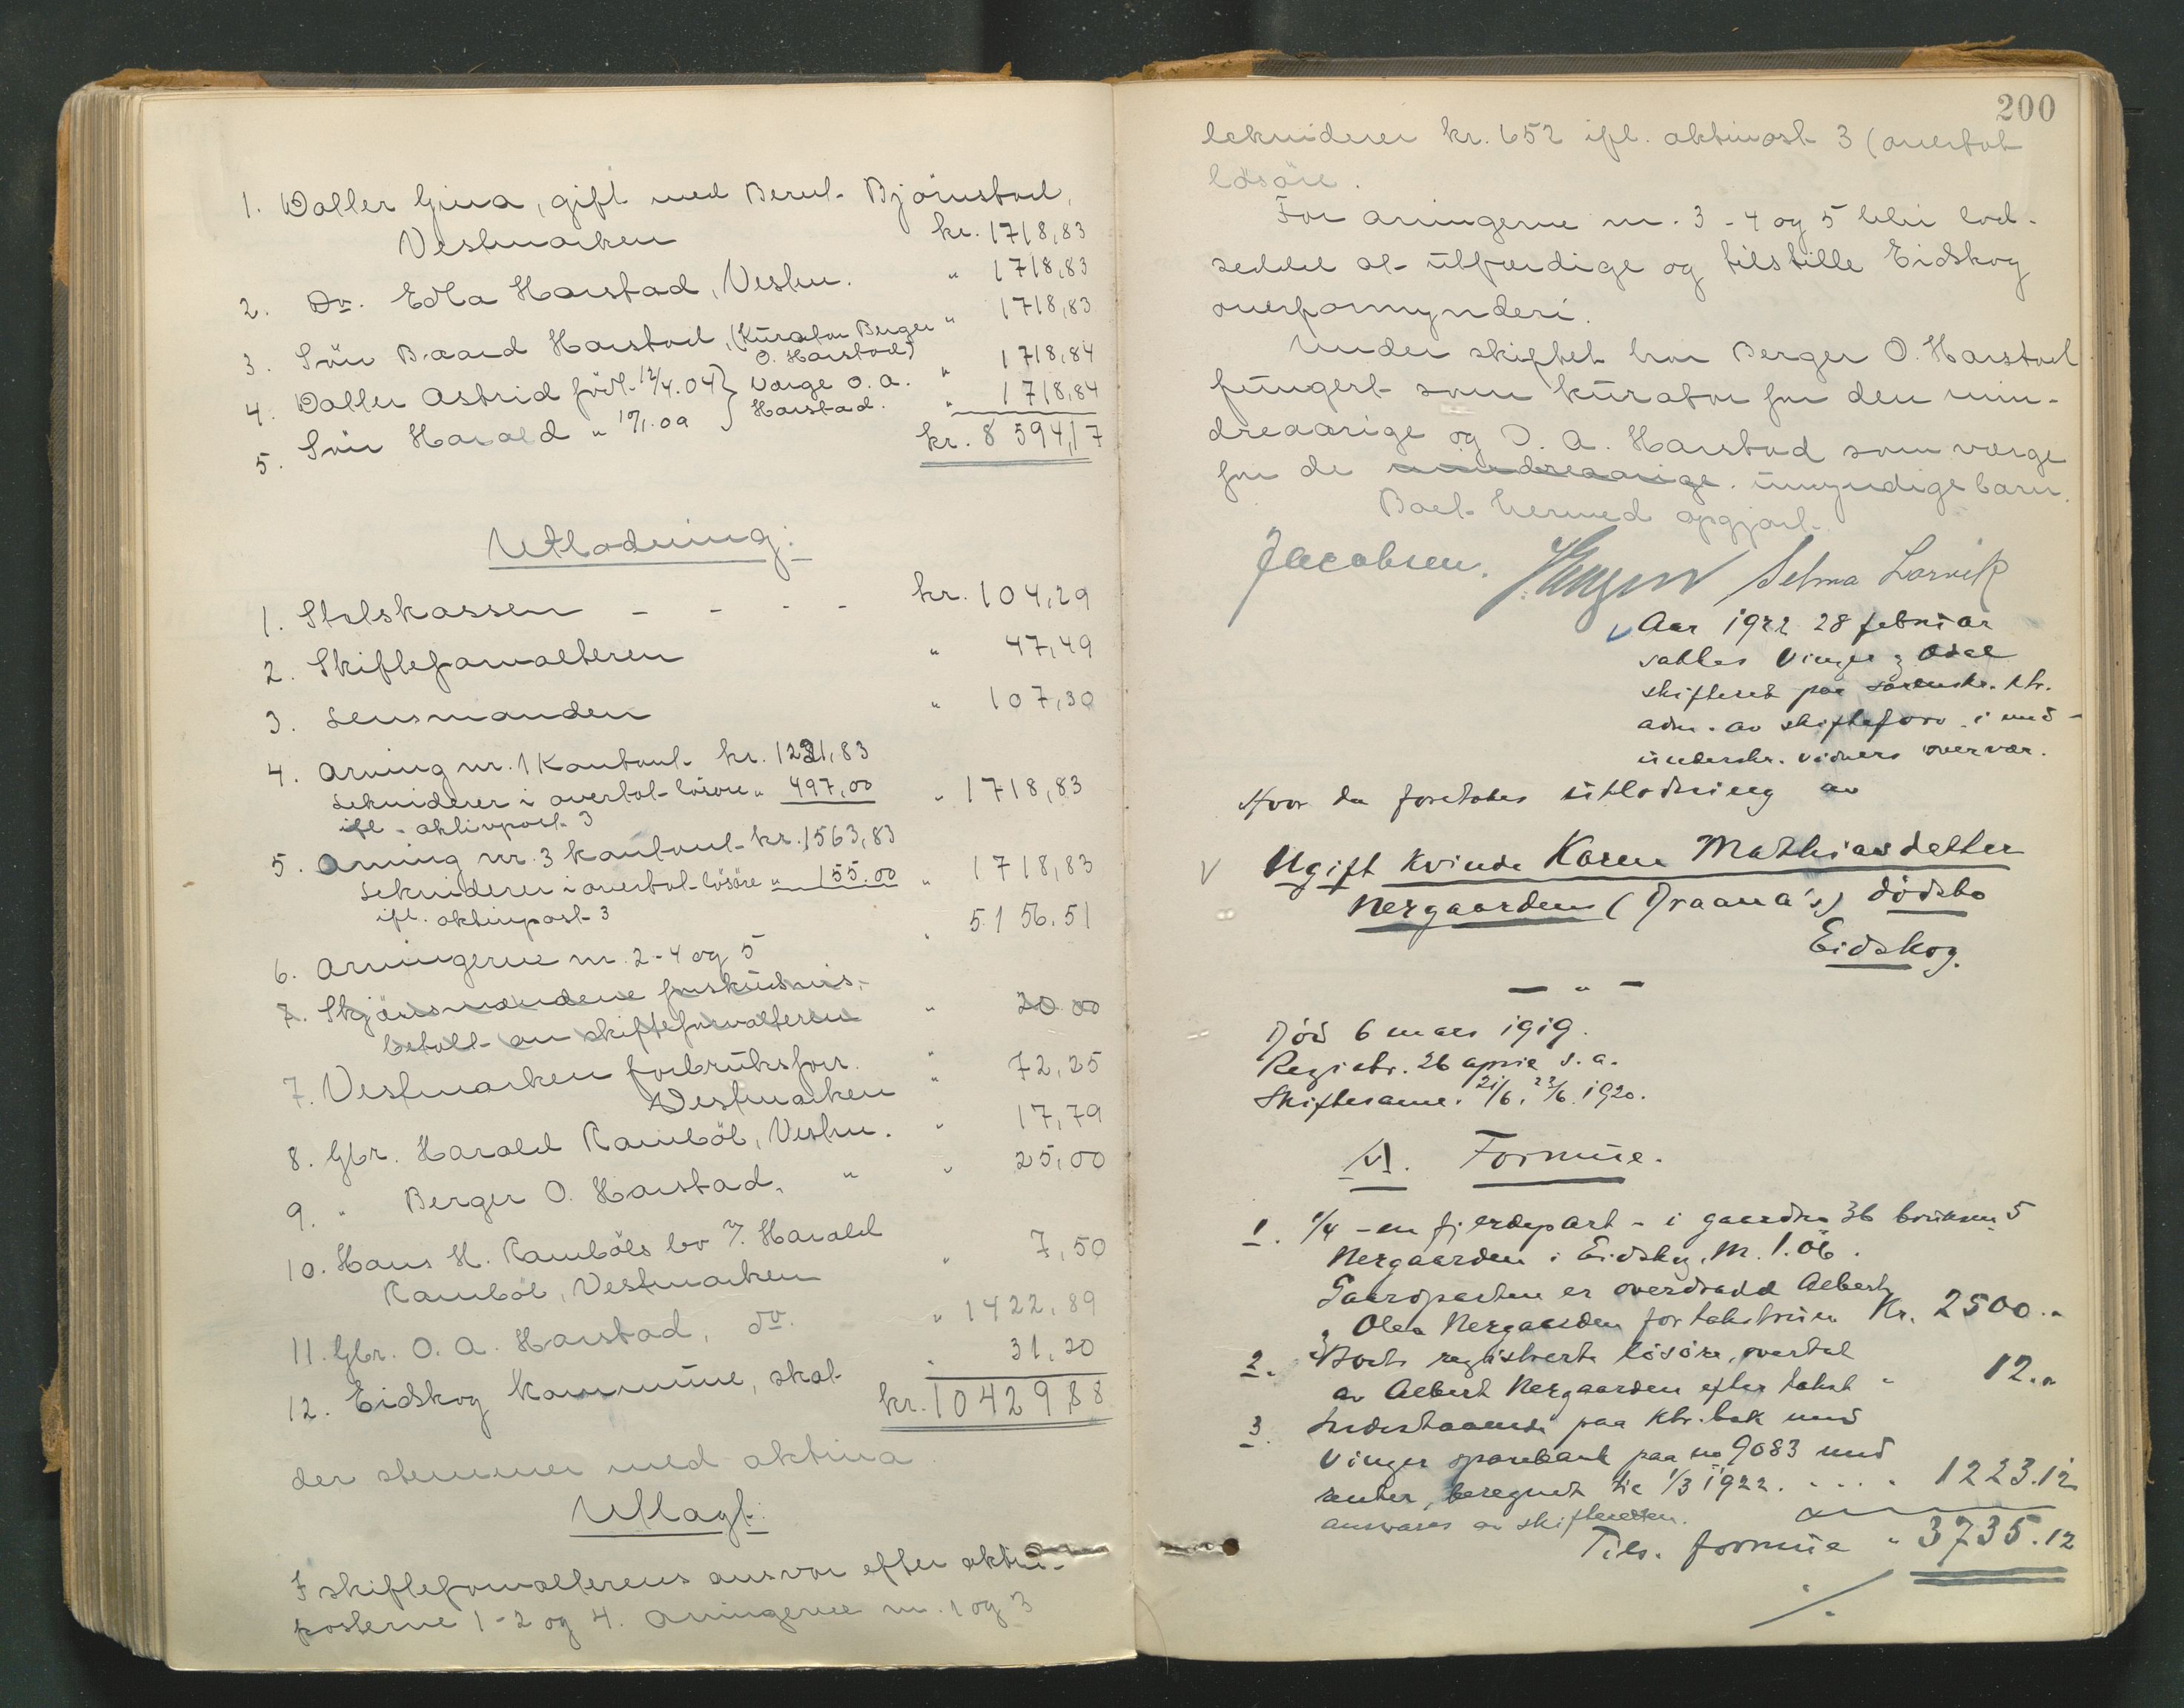 1. Datter Gina, gift med Bernt Björnstad,
Vestmarken kr. 1718,83
2. Do. Edla Harstad, Vestm. " 1718,83
3. Sön Baard Harstad, (Kurator Berger O. Harstad) " 1718,83
4. Datter Astrid föd 12/4.04 } Værge O. A. " 1718,84
5. Sön Harald " 19/1.09 } Harstad. " 1718,84
kr. 8594,17
Utlodning:
1. Statskassen - - - - kr. 104,29
2. Skifteforvalteren " 47,49
3. Lensmanden " 107,30
4. Arving nr. 1 Kontant kr. 1221,83
Lekviderer i overtat lösöre " 497,00 " 1718,83
ifl. aktivpost 3
5. Arving nr. 3 kontant kr. 1563,83
Lekviderer i overtat lösöre " 155.00 " 1718,83
ifl. aktivpost 3
6. Arvingerne nr. 2-4 og 5 " 5156.51
7. Skjönsmændene forskudsvis
betalt av skifteforvalteren " 20.00
7. Vestmarken forbruksfor. " 72,25
Vestmarken
8. Gbr. Harald Ramböl, Vestm. " 17,79
9. " Berger O. Harstad, " " 25,00
10. Hans H. Ramböls bo v/ Harald
Ramböl, Vestmarken " 7,50
11. Gbr. O. A. Harstad, do. " 1422,89
12. Eidskog Kommune, skat " 31,20
kr. 10429,88
der stemmer med aktiva
Utlagt:
I skifteforvalterens ansvar efter aktiv-
posterne 1-2 og 4. Arvingerne nr. 1 og 3
200
lekviderer kr. 652 ifl. aktivpost 3 (overtat
lösöre.
For arvingerne nr. 3-4 og 5 blir lod-
seddel at utfærdige og tilstille Eidskog
overformynderi.
Under skiftet har Berger O. Harstad
fungert som kurator for den min-
dreaarige og O. A. Harstad som værge
for de mindreaarige umyndige barn.
Boet hermed opgjort.
Jacobsen. Selma Larvik
Aar 1922 28 februar
sattes Vinger og Odal
skifteret paa sorenskr. ktr.
adm. av skifteforv. i und-
underskr. vidners overvær.
Hvor da foretokes utlodning av
Ugift kvinde Karen Mathiasdatter
Nergaarden (Draana's) dödsbo
Eidskog.
- " -
Död 6 mars 1919.
Registr. 26 april s. a.
Skiftesaml. 21/6, 23/6. 1920.
A. Formue.
1. 1/4 - en fjerdepart - i gaardsnr 36 bruksnr 5
Nergaarden i Eidskog, M. 1.06.
Gaardparten er overdradd Albert
og Olea Nergaarden for takstsum Kr. 2500."
2. Boets registrerte lösöre, overtat
av Albert Nergaarden efter takst " 12."
3. Indestaaende paa ktr. bok med
Vinger sparebank paa no 9083 med
renter, beregnet til 1/3 1922. . . . . 1223.12
ansvares av skifteretten.
Tils. formue " 3735.12
./.